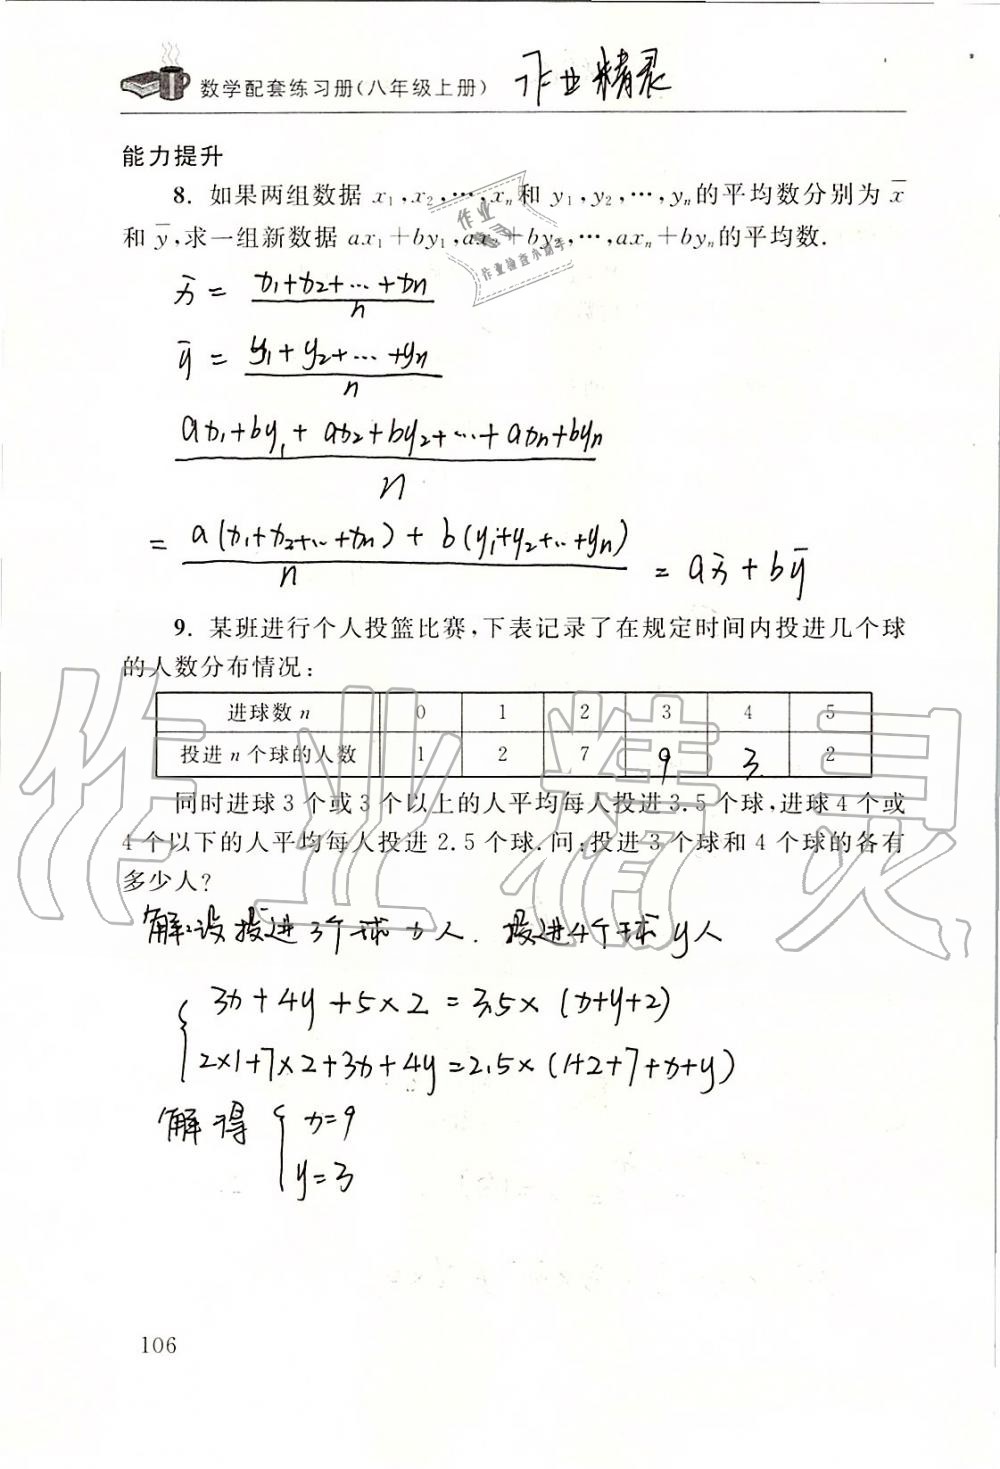 数学配套练习册(八年级上册) 作业精灵
能力提升
8. 如果两组数据 x₁,x₂,…,xₙ和 y₁,y₂,…,yₙ的平均数分别为 x̅
和 y̅,求一组新数据 ax₁+by₁,ax₂+by₂,…,axₙ+byₙ的平均数.
作业
作业检查小助手
x̅ = (x₁+x₂+…+xₙ)/n
y̅ = (y₁+y₂+…+yₙ)/n
(ax₁+by₁+ax₂+by₂+…+axₙ+byₙ)/n
= (a(x₁+x₂+…+xₙ)+b(y₁+y₂+…+yₙ))/n = ax̅+by̅
9. 某班进行个人投篮比赛,下表记录了在规定时间内投进几个球
的人数分布情况:
进球数 n 0 1 2 3 4 5
投进 n 个球的人数 1 2 7 9 3 2
同时进球 3 个或 3 个以上的人平均每人投进 3.5 个球,进球 4 个或
4 个以下的人平均每人投进 2.5 个球.问:投进 3 个球和 4 个球的各有
多少人?
作业精灵
解:设投进3个球x人.投进4个球y人
3x+4y+5×2=3.5×(x+y+2)
2×1+7×2+3x+4y=2.5×(1+2+7+x+y)
解得 x=9
y=3
106